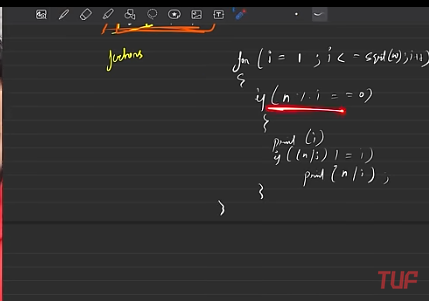 factors
for (i = 1 ; i <= sqrt(n) ; i++)
{
if (n % i == 0)
}
print (i)
if ((n/i) != i)
print (n/i) ;
}
}
TUF